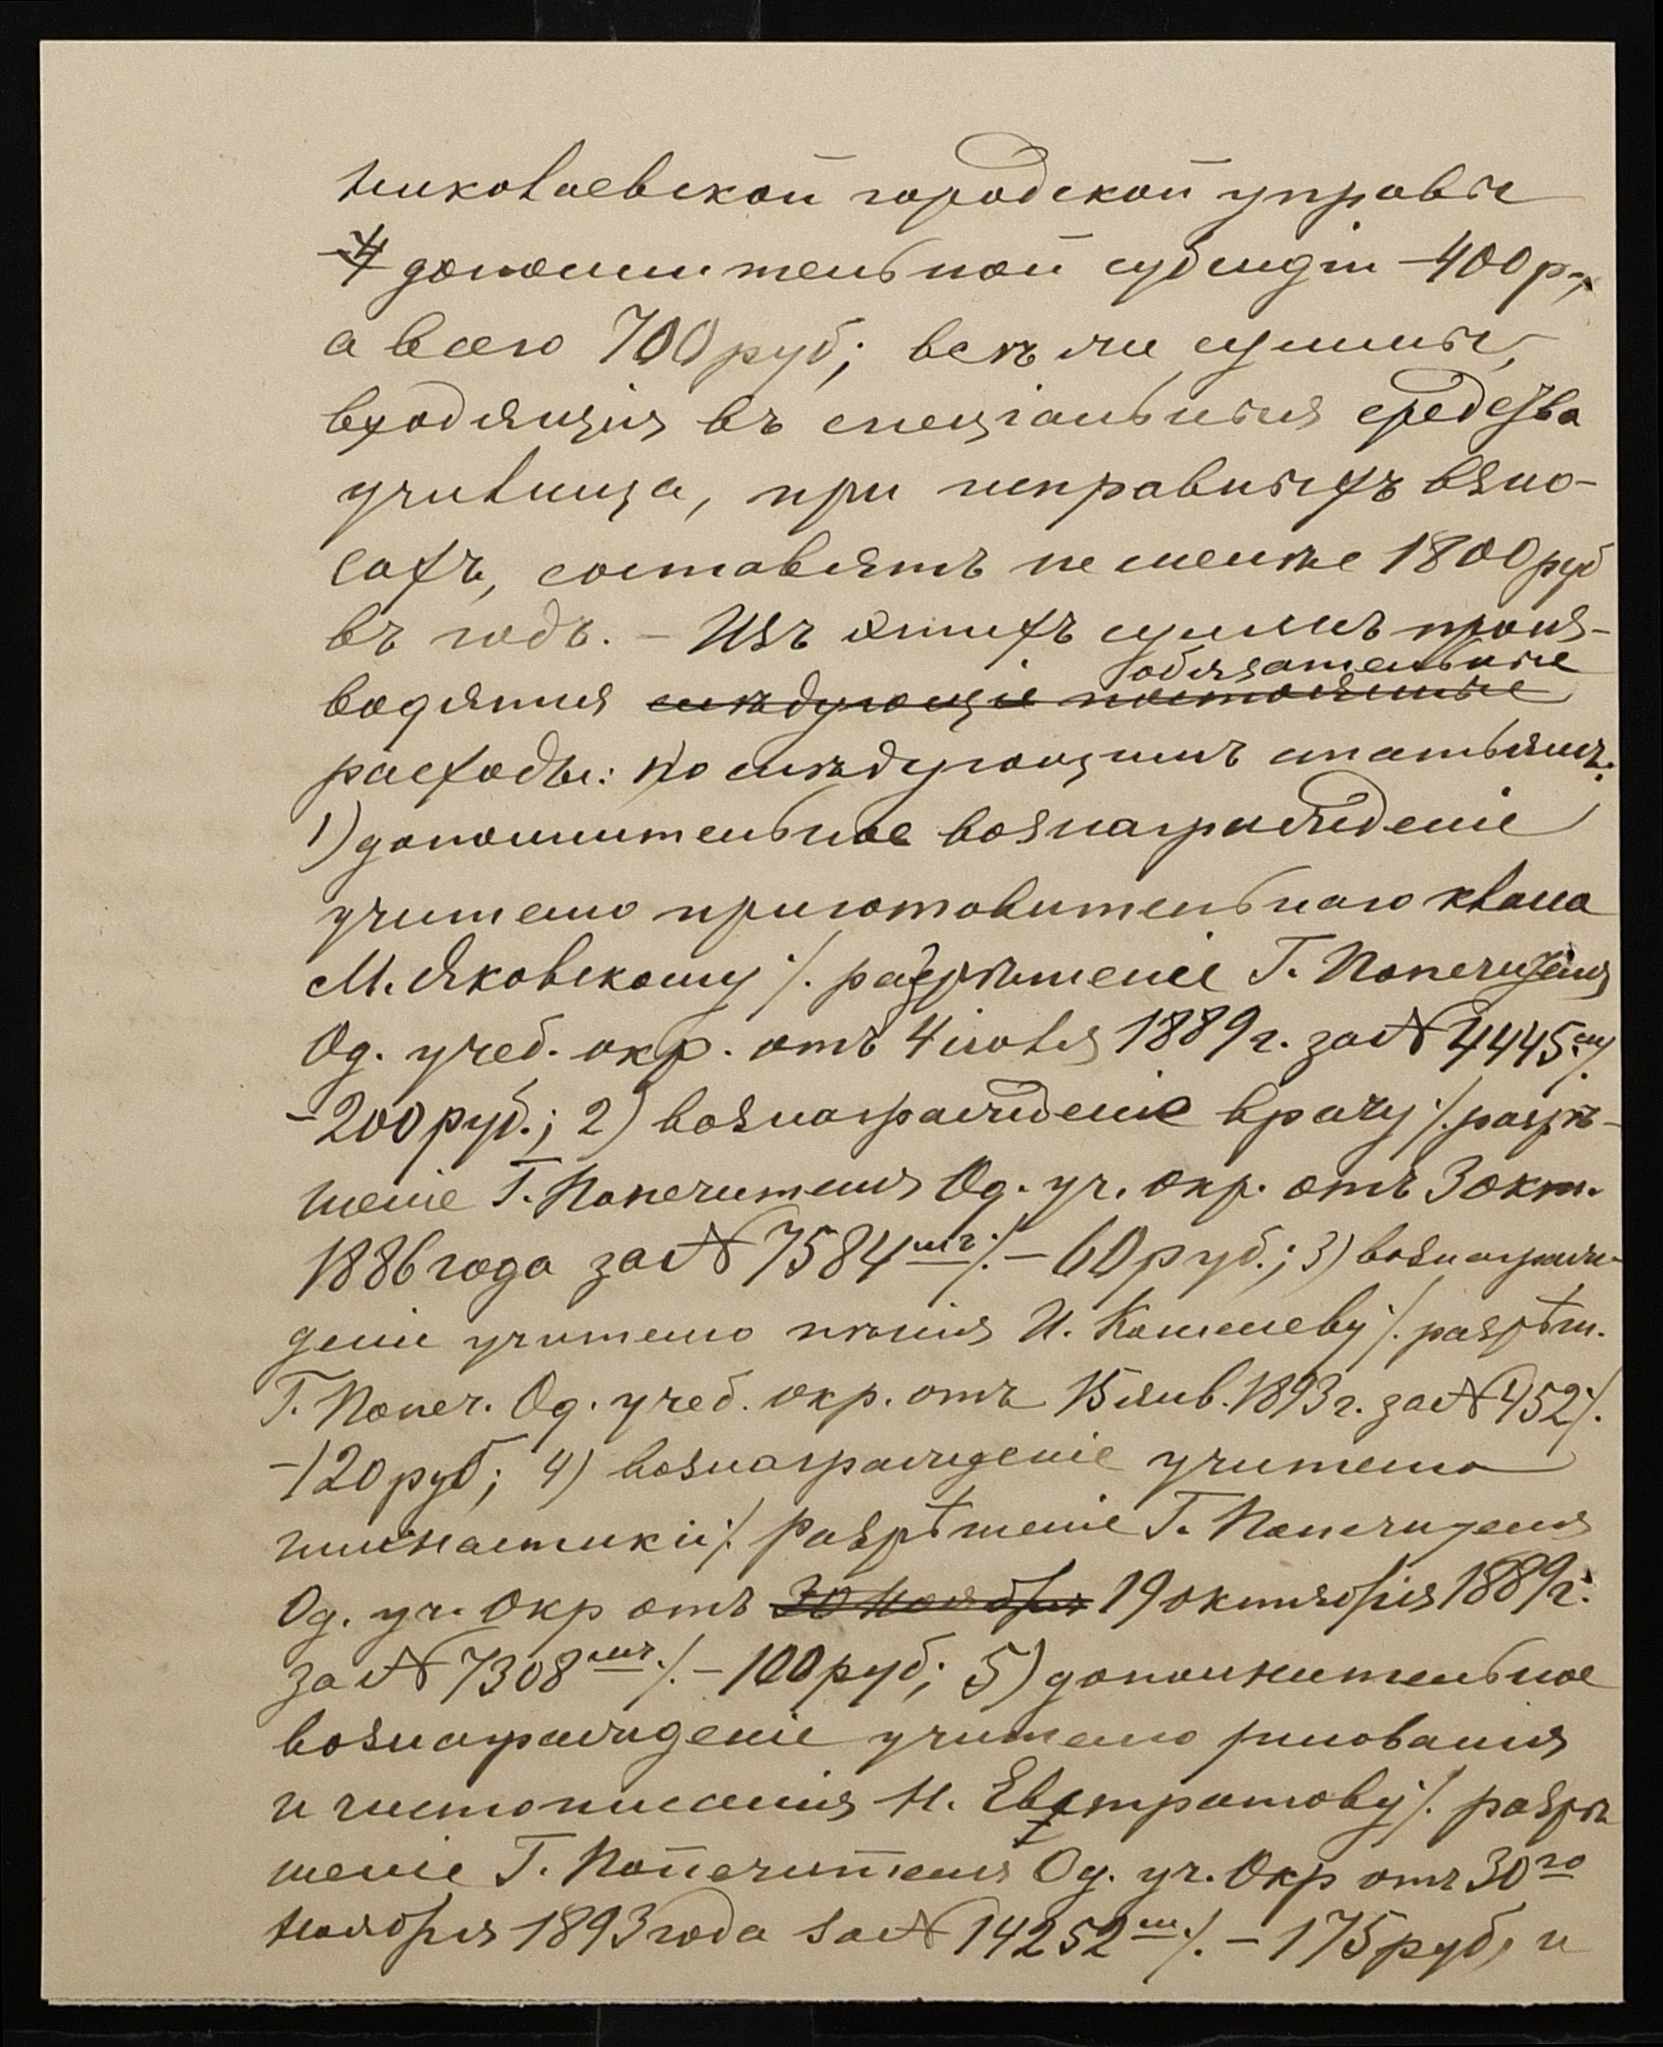 Николаевской городской управы
дополнительной субсидіи – 400 р.,
а всего 700 руб; всѣ эти суммы,
входящія въ спеціальныя средства
училища, при исправныхъ взно-
сахъ, составлятъ не менѣе 1800 руб
въ годъ. – Изъ этихъ суммъ произ-
обязательные
водятся слѣдующіе постоянные
расходы: по слѣдующимъ статьямъ:
1) дополнительное вознагражденіе
учителю приготовительнаго класса
М. Яковскому /. разрѣшеніе Г. Попечителя
Од. учеб. окр. отъ 4 іюля 1889 г. за № 4445 /.
– 200 руб.; 2) вознагражденіе врачу /. разрѣ-
шеніе Г. Попечителя Од. уч. окр. отъ 3 окт.
1886 года за № 7584 /. – 60 руб.; 3) вознаграж-
деніе учителю пѣнія И. Кошелеву /. разрѣш.
Г. Попеч. Од. учеб. окр. отъ 15 янв. 1893 г. за № 452 /.
– 120 руб; 4) вознагражденіе учителю
гимнастики /. Разрѣшеніе Г. Попечителя
Од. уч. Окр отъ 30 Ноября 19 октября 1889 г.
за № 7308 /. – 100 руб; 5) дополнительное
вознагражденіе учителю рисованія
и чистописанія Н. Евстратову /. разрѣ
шеніе Г. Попечителя Од. уч. Окр отъ 30го
Ноября 1893 года за № 14252 /. – 175 руб, и